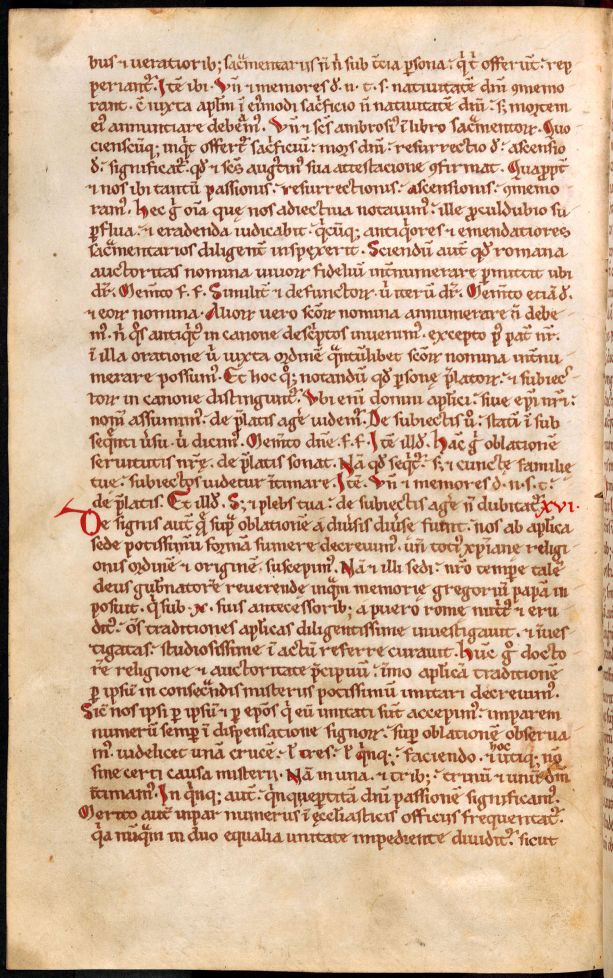 bus ⁊ veratiorib; sac̄mentariis n̄ n̄ sub t̄cia ꝑsona · q̄t offerūt · reꝑ
ꝑeriant᷑. Itē ibi. Vn̄ ⁊ memores d̄. n. t. s. nativitatē dn̄i ꝯmemo
rant. c̄ iuxta aplm̄ ī eiꝰmodi sac̄ficio n̄ nativitatē dn̄i · sꝫ mortem
eiꝰ annunciare debemꝰ. Vn̄ ⁊ sc̄s ambrosiꝰ ī libro sac̄mentoꝝ. Quo
cienscūq; inq̄t offert᷑ sac̄ficiū · mors dn̄i · resurrectio d̄ · ascensio
d̄ · significat᷑. qd̄ ⁊ sc̄s augꝰtinꝰ sua attestacione ꝯfirmat. Quaꝓpt̄
⁊ nos ibi tantū passionis · resurrectionis · ascensionis · ꝯmemo
ramꝰ. Hec g̊ oīa que nos adiectiua notauimꝰ · ille ꝓculdubio su
ꝑflua · ⁊ eradenda iudicabit · q̄cūq; antiq̊ores ⁊ emendatiores
sac̄mentarios diligent̄ inspexerit. Sciendū aut̄ qd̄ romana
auctoritas nomina uiuoꝝ fideliū int̄numerare ꝑmittit ubi
dr̄. Mem̄to f. f. Similit̄ ⁊ defunctoꝝ · u̇ iterū dr̄. Mem̄to etiā d̄.
⁊ eoꝝ nomina. Alioꝝ uero sc̄oꝝ nomina annumerare n̄ debe
mꝰ. n̄ q̊s antiq̇tꝰ in canone desc̄ptos inuenimꝰ. excepto ꝑ pat̄ nr̄.
ī illa oratione u̇ iuxta ordinē q̄ntūlibet sc̄oꝝ nomina int̄nu
merare possumꝰ. Et hoc q̊ꝫ notandū qd̄ ꝑsonę p̄latoꝝ · ⁊ subiec
toꝝ in canone distinguunt᷑. Vbi enī domni aplici · siue ep̄i nr̄i ·
nom̄ assumimꝰ. de p̄latis age᷑ uidemꝰ. De subiectis u̇ · statī ī sub
seq̄nti u̇su. u̇ dicimꝰ. Mem̄to dn̄e. f. f. Itē illd̄. Hāc g̊ oblationē
seruitutis nr̄ę. de p̄latis sonat. Nā qd̄ seq̇t᷑ · sꝫ ⁊ cuncte familie
tue · subiectos uidetur īꝫtimare. Itē. Vn̄ ⁊ memores d. n. s. t ·
de p̄latis. Et illd̄. Sꝫ ⁊ plebs tua · de subiectis age᷑ n̄ dubitat᷑. XVI.
De signis aut̄ q̄ suꝑ oblationē a diu̇sis diu̇se fiunt · nos ab aplica
sede potissimū formā sumere decreuimꝰ. un̄ totiꝰ xp̄iane religi
onis ordinē ⁊ originē suscepimꝰ. Nā ⁊ illi sedi · nr̄o tempe talē
deus gub̄natorē reuerende inq̄m memorie gregoriū papā im
posuit. q̇ sub .x. suis antecessorib; a puero rome nut̄tꝰ ⁊ eru
ditꝰ. om̄s traditiones aplicas diligentissime inuestigauit. ⁊ īues
tigatas · studiosissime ī actū referre curauit. Huiꝰ g̊ docto
rē religione ⁊ auctoritate p̄cipuū · īmo aplicā traditionē
ꝑ ipsū in consec̄ndis misteriis potissimū imitari decreuimꝰ.
Sic̄ nos ipsi ꝑ ipsū ⁊ ꝑ ep̄os q̇ eū imitati sunt accepimꝰ. imparem
numerū semꝑ ī dispensatione signoꝝ · suꝑ oblationē obserua
mꝰ. uidelicet unā crucē · ł tres · ł q̇nq; · faciendo · ⁊ hoc utiq; no
sine certi causa misterii. Nā in una · ⁊ trib; · trinū ⁊ unū dm̄
īꝫtimamꝰ. In q̇nq; aut̄ · q̇nqueꝑtitā dn̄i passionē significamꝰ.
Merito aut̄ inpar numerus ī ęccliasticis officiis frequentat᷑.
q̇a nūq̄m in duo equalia unitate impediente diuidit᷑ · sicut